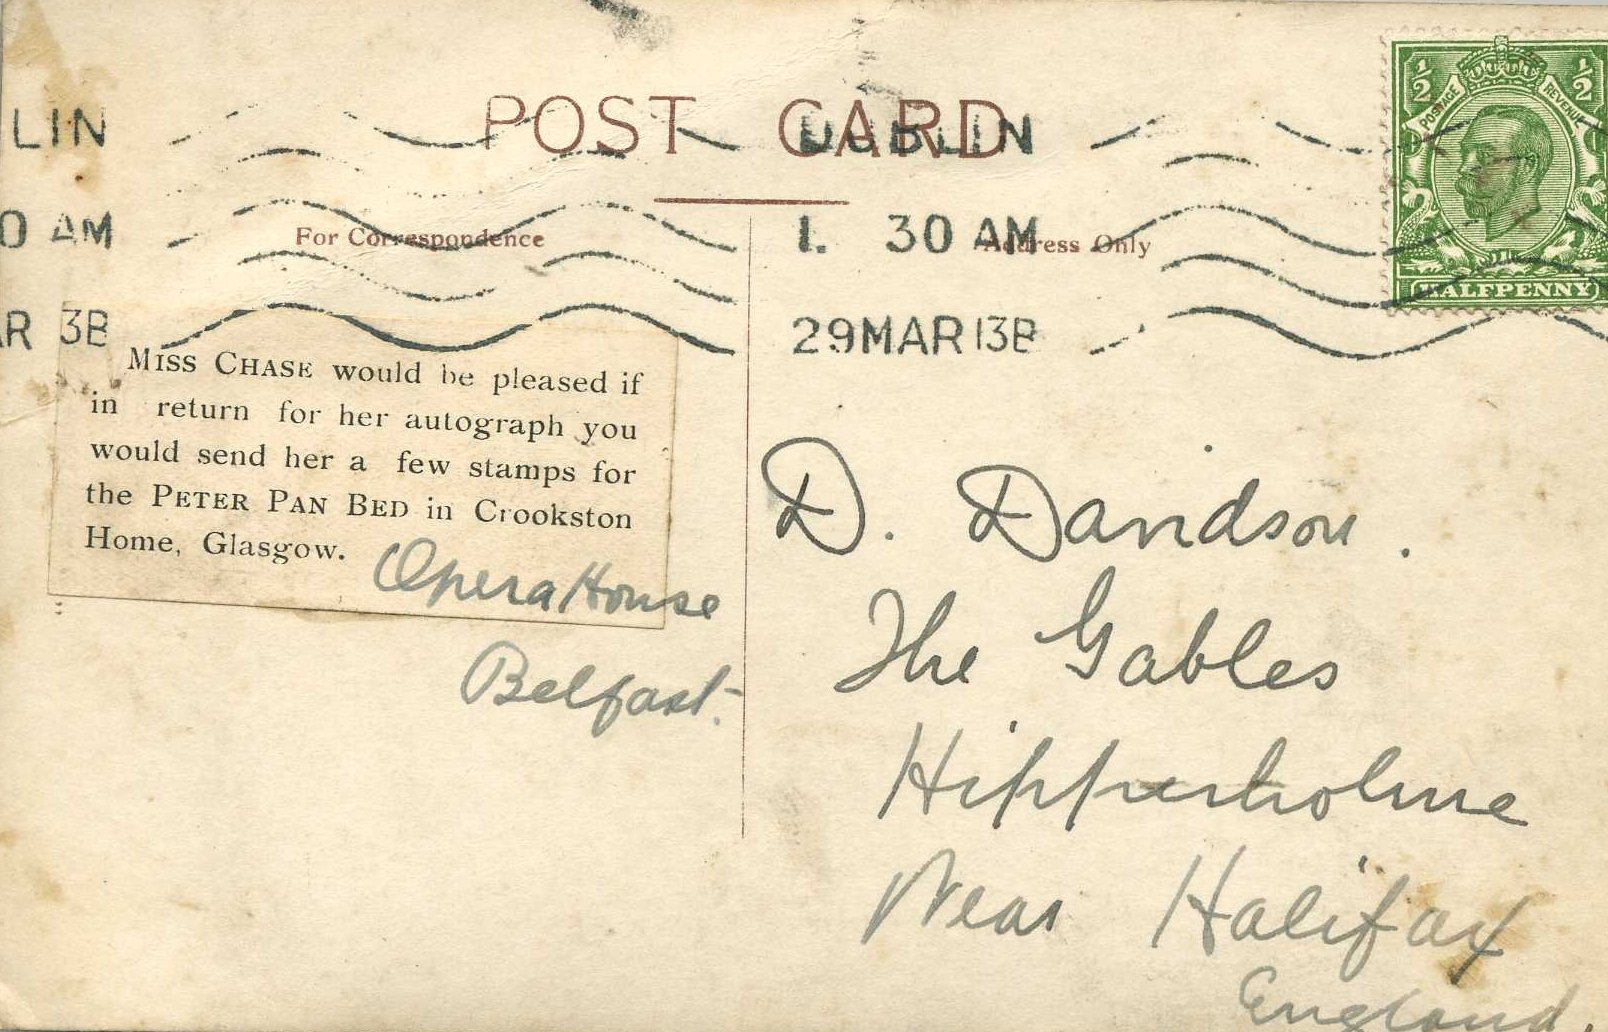 POST CARD
For Correspondence
Address Only
LIN
0 AM
AR 3B
DUBLIN
1. 30 AM
29 MAR 13B
½ ½
POSTAGE REVENUE
HALFPENNY
MISS CHASE would be pleased if
in return for her autograph you
would send her a few stamps for
the PETER PAN BED in Crookston
Home, Glasgow.
Opera House
Belfast.
D. Davidson.
The Gables
Hipperholme
Near Halifax
England.